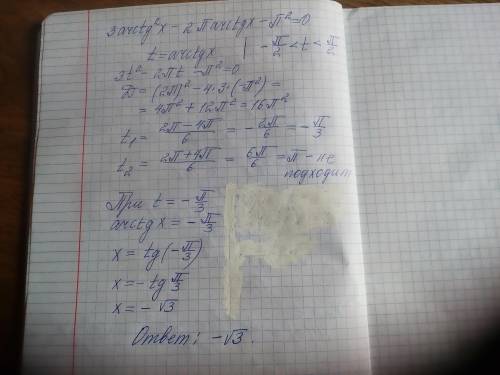 3 arctg²x - 2π arctgx - π² = 0
t = arctgx | -π/2 < t < π/2
3t² - 2πt - π² = 0
D = (2π)² - 4·3·(-π²) =
= 4π² + 12π² = 16π²
t₁ = (2π - 4π)/6 = -2π/6 = -π/3
t₂ = (2π + 4π)/6 = 6π/6 = π - не
подходит
При t = -π/3
arctg x = -π/3
x = tg(-π/3)
x = -tg π/3
x = -√3
Ответ: -√3.